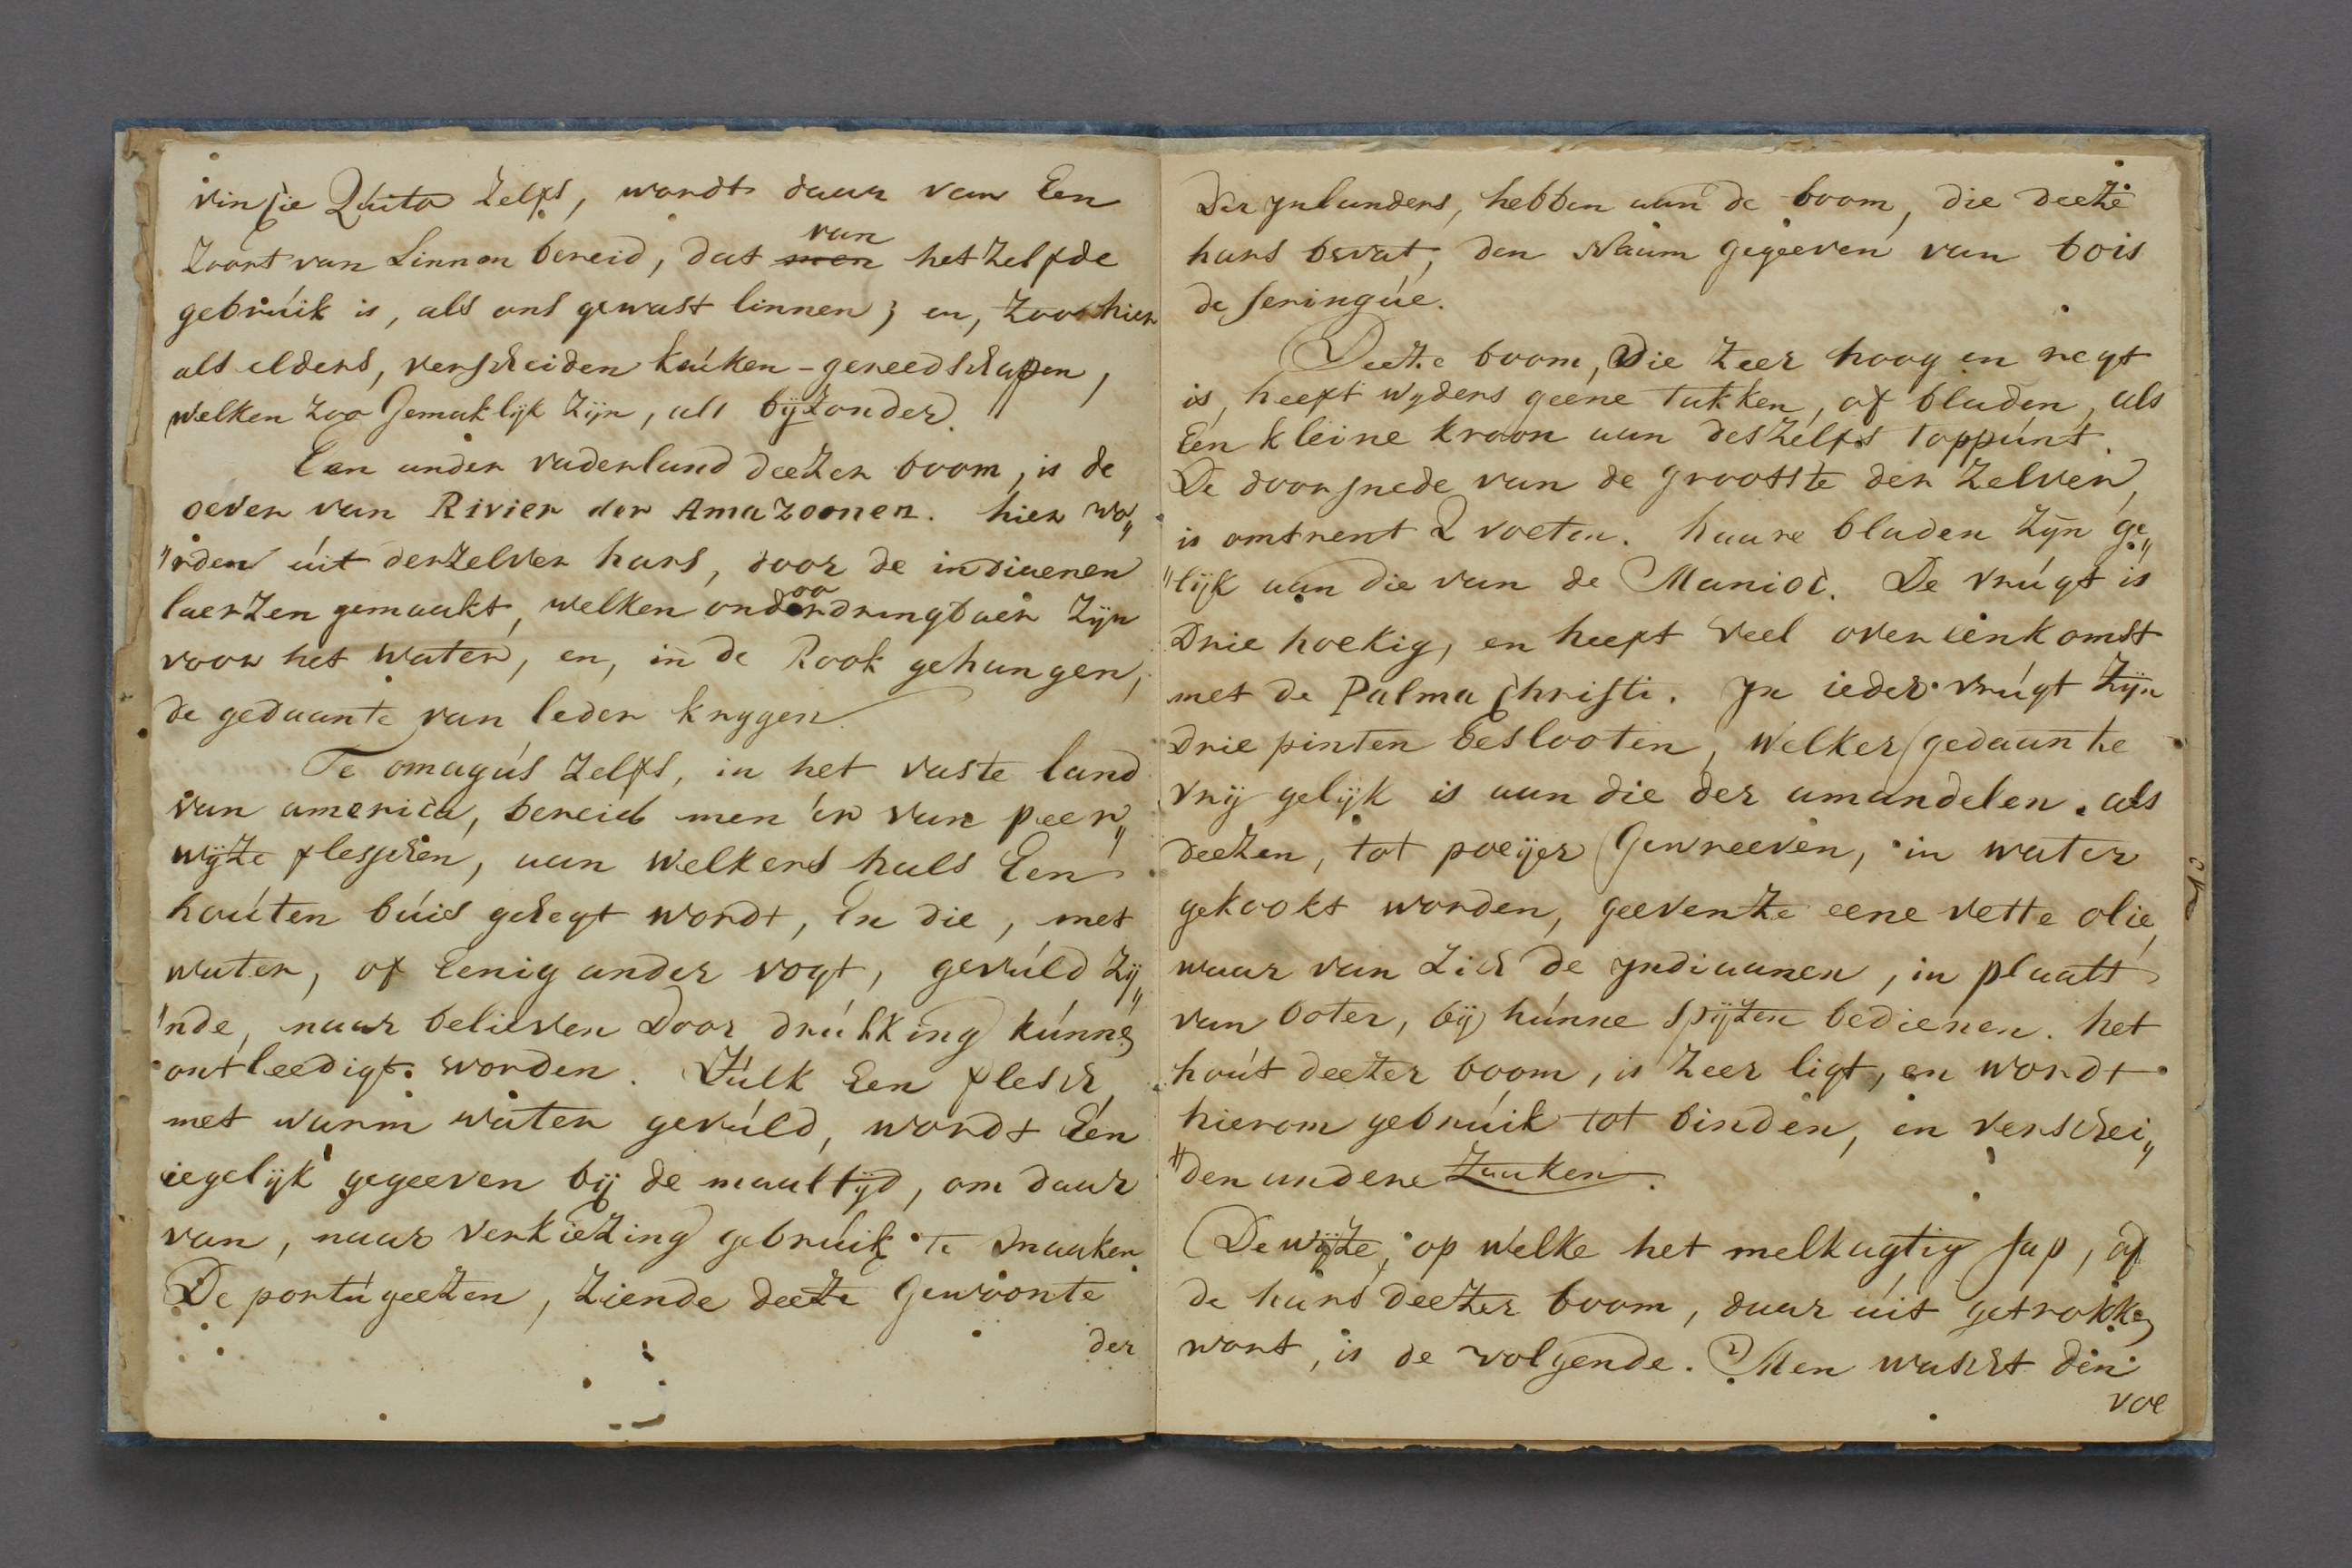 vinsie Quito zelfs, wordt daar van Een
zoort van Linnen bereid, dat men van het zelfde
gebrúik is, als ons gewast linnen; en, zoo hier
als elders, verscheiden keúken-gereedschappen,
welken zoo Gemaklijk zijn, als bijzonder.
Een ander vaderland deezer boom, is de
oever van Rivier der Amazoonen. hier wo„
„rden úit derzelver hars, door de indiaenen
laerzen gemaakt, welken ondoordringbaer zijn
voor het water, en, in de Rook gehangen,
de gedaante van leder krygen.
Te omagús zelfs, in het vaste land
van america, bereid men 'er van peer„
wijze flesschen, aan welkers hals Een
hoúten búis gehegt wordt, En die, met
water, of Eenig ander vogt, gevúld zij„
„nde, naar believen Door drúkking kúnnen
ontleedigt worden. Zúlk Een flesch,
met warm water gevúld, wordt Een
iegelijk gegeeven bij de maaltijd, om daar
van, naar verkiezing gebrúik te maaken.
De portúgeezen, ziende deeze Gewoonte
der
Der ynlanders, hebben aan de boom, die deeze
hars bevat, den Naam gegeeven van bois
de seringúe.
Deeze boom, Die zeer hoog en regt
is, heeft wyders geene takken, of bladen, als
Een kleine kroon aan deszelfs toppúnt.
De doorsnede van de grootste der zelver,
is omtrent 2 voeten. haare bladen zijn ge„
„lijk aan die van de Manioc. De vrúgt is
Drie hoekig, en heeft veel over eenkomst
met de Palma Christi. Jn ieder vrúgt zijn
Drie pinten beslooten, welker gedaante
vrij gelijk is aan die der amandelen. als
deezen, tot poeijer Gewreeven, in water
gekookt worden, geeven ze eene vette olie,
waar van zich de yndiaanen, in plaats
van boter, bij húnne spijzen bedienen. het
hoút deezer boom, is zeer ligt, en wordt
hierom gebrúik tot binden, en verschei„
„den andere zaaken.
De wijze, op welke het melkagtig sap, of
de hars deezer boom, daar úit getrokken
wort, is de volgende. Men wascht den
voe